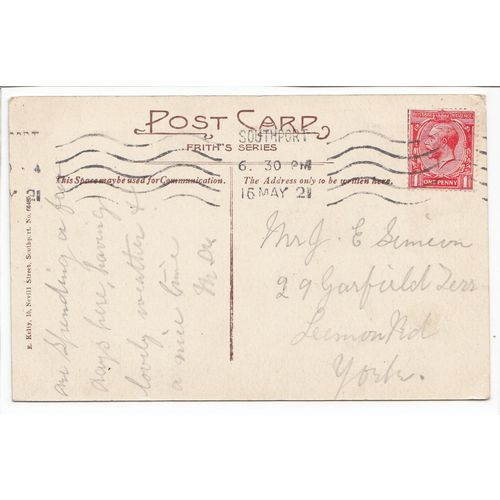 POST CARD
FRITH'S SERIES
SOUTHPORT
6. 30 PM
16 MAY 21
This Space may be used for Communication.
The Address only to be written here.
ONE PENNY
E. Kelty, 10, Nevill Street, Southport. No.
am Spending a few
days here, having
lovely weather &
a nice time
Mrs J. E Simeon
29 Garfield Terr
Leeman Rd
York.